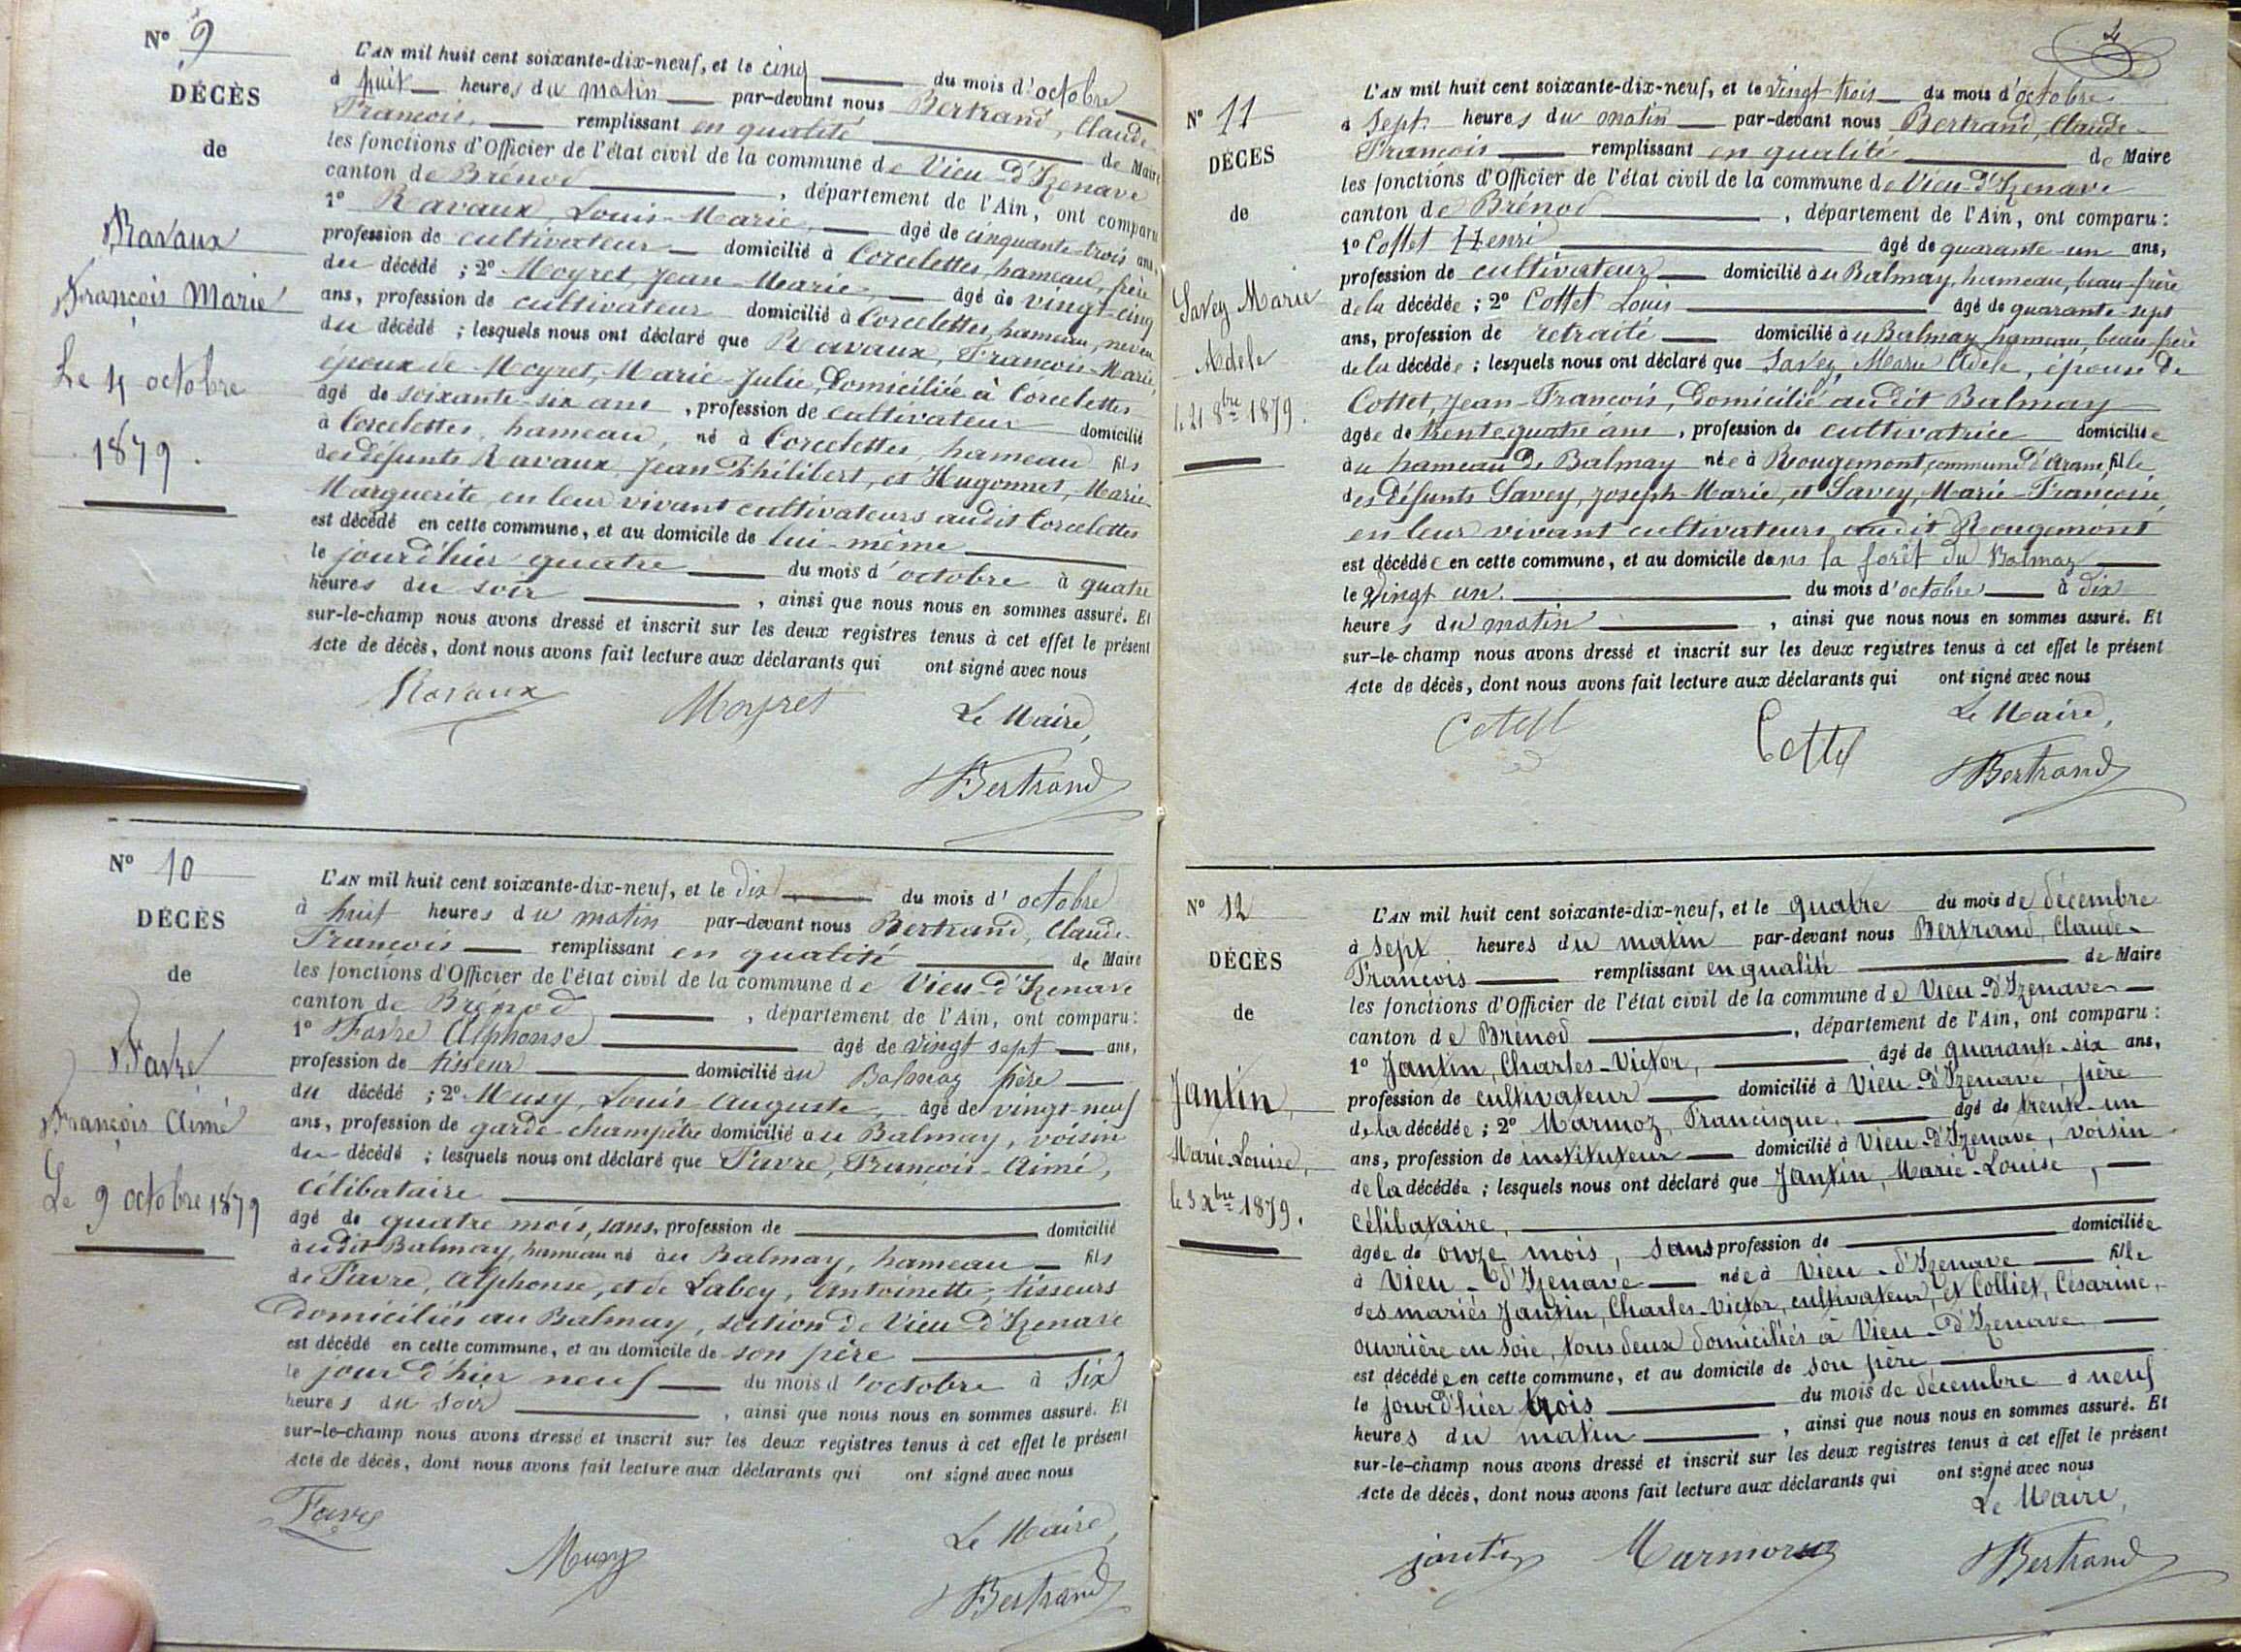 Nº 9
DÉCÈS
de
Ravaux
François Marie
Le 4 octobre
1879.
L'AN mil huit cent soixante-dix-neuf, et le cinq du mois d'octobre
à huit heures du matin par-devant nous Bertrand, Claude-
François, remplissant en qualité de Maire
les fonctions d'Officier de l'état civil de la commune de Vieu-d'Izenave
canton de Brénod, département de l'Ain, ont comparu
1º Ravaux, Louis-Marie, âgé de cinquante-trois ans,
profession de cultivateur domicilié à Corcelettes, hameau, frère
du décédé ; 2º Moyret, Jean-Marie, âgé de vingt-cinq
ans, profession de cultivateur domicilié à Corcelettes, hameau, neveu
du décédé ; lesquels nous ont déclaré que Ravaux, François-Marie,
époux de Moyret, Marie-Julie, domiciliée à Corcelettes
âgé de soixante-six ans, profession de cultivateur domicilié
à Corcelettes, hameau, né à Corcelettes, hameau fils
des défunts Ravaux, Jean-Philibert, et Hugonnet, Marie-
Marguerite, en leur vivant cultivateurs audit Corcelettes
est décédé en cette commune, et au domicile de lui-même
le jour d'hier quatre du mois d'octobre à quatre
heures du soir, ainsi que nous nous en sommes assuré. Et
sur-le-champ nous avons dressé et inscrit sur les deux registres tenus à cet effet le présent
Acte de décès, dont nous avons fait lecture aux déclarants qui ont signé avec nous
Ravaux Moyret Le Maire,
Bertrand
Nº 10
DÉCÈS
de
Favre
François Aimé
Le 9 octobre 1879
L'AN mil huit cent soixante-dix-neuf, et le dix du mois d'octobre
à huit heures du matin par-devant nous Bertrand, Claude-
François remplissant en qualité de Maire
les fonctions d'Officier de l'état civil de la commune de Vieu-d'Izenave
canton de Brénod, département de l'Ain, ont comparu:
1º Favre Alphonse âgé de vingt sept ans,
profession de tisseur domicilié au Balmay père
du décédé ; 2º Musy, Louis-Auguste, âgé de vingt-neuf
ans, profession de garde-champêtre domicilié au Balmay, voisin
du décédé ; lesquels nous ont déclaré que Favre, François-Aimé,
célibataire
âgé de quatre mois, sans, profession de domicilié
audit Balmay, hameau né au Balmay, hameau fils
de Favre, Alphonse, et de Labey, Antoinette, tisseurs
domiciliés au Balmay, section de Vieu-d'Izenave
est décédé en cette commune, et au domicile de son père
le jour d'hier neuf du mois d'octobre à six
heures du soir, ainsi que nous nous en sommes assuré. Et
sur-le-champ nous avons dressé et inscrit sur les deux registres tenus à cet effet le présent
Acte de décès, dont nous avons fait lecture aux déclarants qui ont signé avec nous
Favre Musy Le Maire,
Bertrand
4
Nº 11
DÉCÈS
de
Savey Marie
Adele
le 21 8bre 1879.
L'AN mil huit cent soixante-dix-neuf, et le vingt-trois du mois d'octobre
à sept heures du matin par-devant nous Bertrand, Claude-
François remplissant en qualité de Maire
les fonctions d'Officier de l'état civil de la commune de Vieu-d'Izenave
canton de Brénod, département de l'Ain, ont comparu :
1º Cottet Henri âgé de quarante-un ans,
profession de cultivateur domicilié au Balmay, hameau, beau-frère
de la décédée ; 2º Cottet Louis âgé de quarante-sept
ans, profession de retraité domicilié au Balmay, hameau, beau-frère
de la décédée ; lesquels nous ont déclaré que Savey, Marie Adèle, épouse de
Cottet, Jean-François, domicilié audit Balmay
âgée de trente quatre ans, profession de cultivatrice domiciliée
au hameau de Balmay née à Rougemont, commune d'Aranc, fille
des défunts Savey, Joseph-Marie, et Savey, Marie-Françoise,
en leur vivant cultivateurs audit Rougemont
est décédée en cette commune, et au domicile dans la forêt du Balmay
le vingt un du mois d'octobre à dix
heures du matin, ainsi que nous nous en sommes assuré. Et
sur-le-champ nous avons dressé et inscrit sur les deux registres tenus à cet effet le présent
Acte de décès, dont nous avons fait lecture aux déclarants qui ont signé avec nous
Cottet Le Maire,
Bertrand
Nº 12
DÉCÈS
de
Jantin,
Marie-Louise,
le 3 Xbre 1879.
L'AN mil huit cent soixante-dix-neuf, et le quatre du mois de décembre
à sept heures du matin par-devant nous Bertrand, Claude-
François remplissant en qualité de Maire
les fonctions d'Officier de l'état civil de la commune de Vieu-d'Izenave
canton de Brénod, département de l'Ain, ont comparu :
1º Jantin, Charles-Victor, âgé de quarante-six ans,
profession de cultivateur domicilié à Vieu-d'Izenave, père
de la décédée ; 2º Marmoz, Francisque, âgé de trente-un
ans, profession de instituteur domicilié à Vieu-d'Izenave, voisin
de la décédée ; lesquels nous ont déclaré que Jantin, Marie-Louise,
célibataire,
âgée de onze mois, sans profession de domiciliée
à Vieu-d'Izenave née à Vieu-d'Izenave fille
des mariés Jantin, Charles-Victor, cultivateur, et Colliet, Césarine,
ouvrière en soie, tous deux domiciliés à Vieu-d'Izenave
est décédée en cette commune, et au domicile de son père
le jour d'hier trois du mois de décembre à neuf
heures du matin, ainsi que nous nous en sommes assuré. Et
sur-le-champ nous avons dressé et inscrit sur les deux registres tenus à cet effet le présent
Acte de décès, dont nous avons fait lecture aux déclarants qui ont signé avec nous
Le Maire,
jantin Marmoz Bertrand